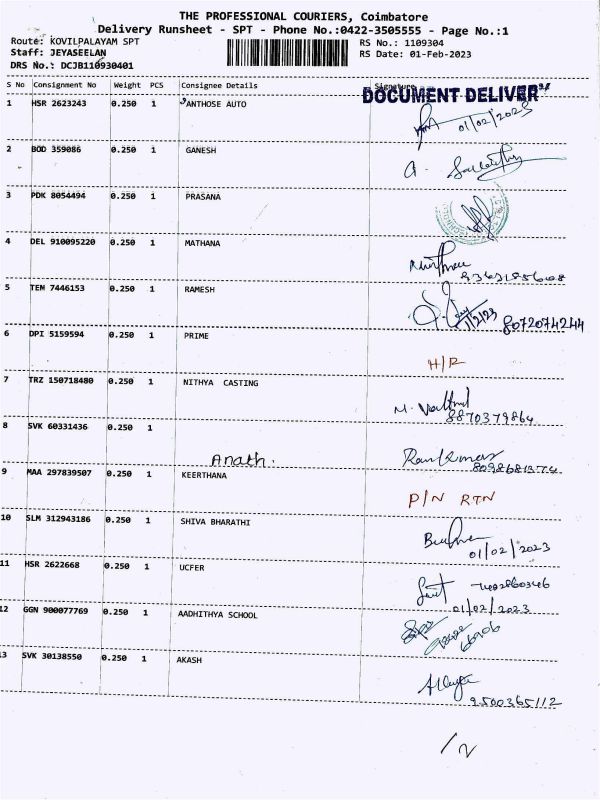 THE PROFESSIONAL COURIERS, Coimbatore
Delivery Runsheet - SPT - Phone No.:0422-3505555 - Page No.:1
Route: KOVILPALAYAM SPT
Staff: JEYASEELAN
DRS No.: DCJB110930401
RS No.: 1109304
RS Date: 01-Feb-2023
S No Consignment No Weight PCS Consignee Details Signature
DOCUMENT DELIVER
1 HSR 2623243 0.250 1 ANTHOSE AUTO 01/02/2023
2 BOD 359086 0.250 1 GANESH
3 PDK 8054494 0.250 1 PRASANA
4 DEL 910095220 0.250 1 MATHANA
5 TEN 7446153 0.250 1 RAMESH 1/2/23 8072074244
6 DPI 5159594 0.250 1 PRIME H/R
7 TRZ 150718480 0.250 1 NITHYA CASTING 8870379864
8 SVK 60331436 0.250 1 Anath. Ramkumar
9 MAA 297839507 0.250 1 KEERTHANA P/N RTN
10 SLM 312943186 0.250 1 SHIVA BHARATHI 01/02/2023
11 HSR 2622668 0.250 1 UCFER 01/02/2023
12 GGN 900077769 0.250 1 AADHITHYA SCHOOL
13 SVK 30138550 0.250 1 AKASH 9500365112
/2